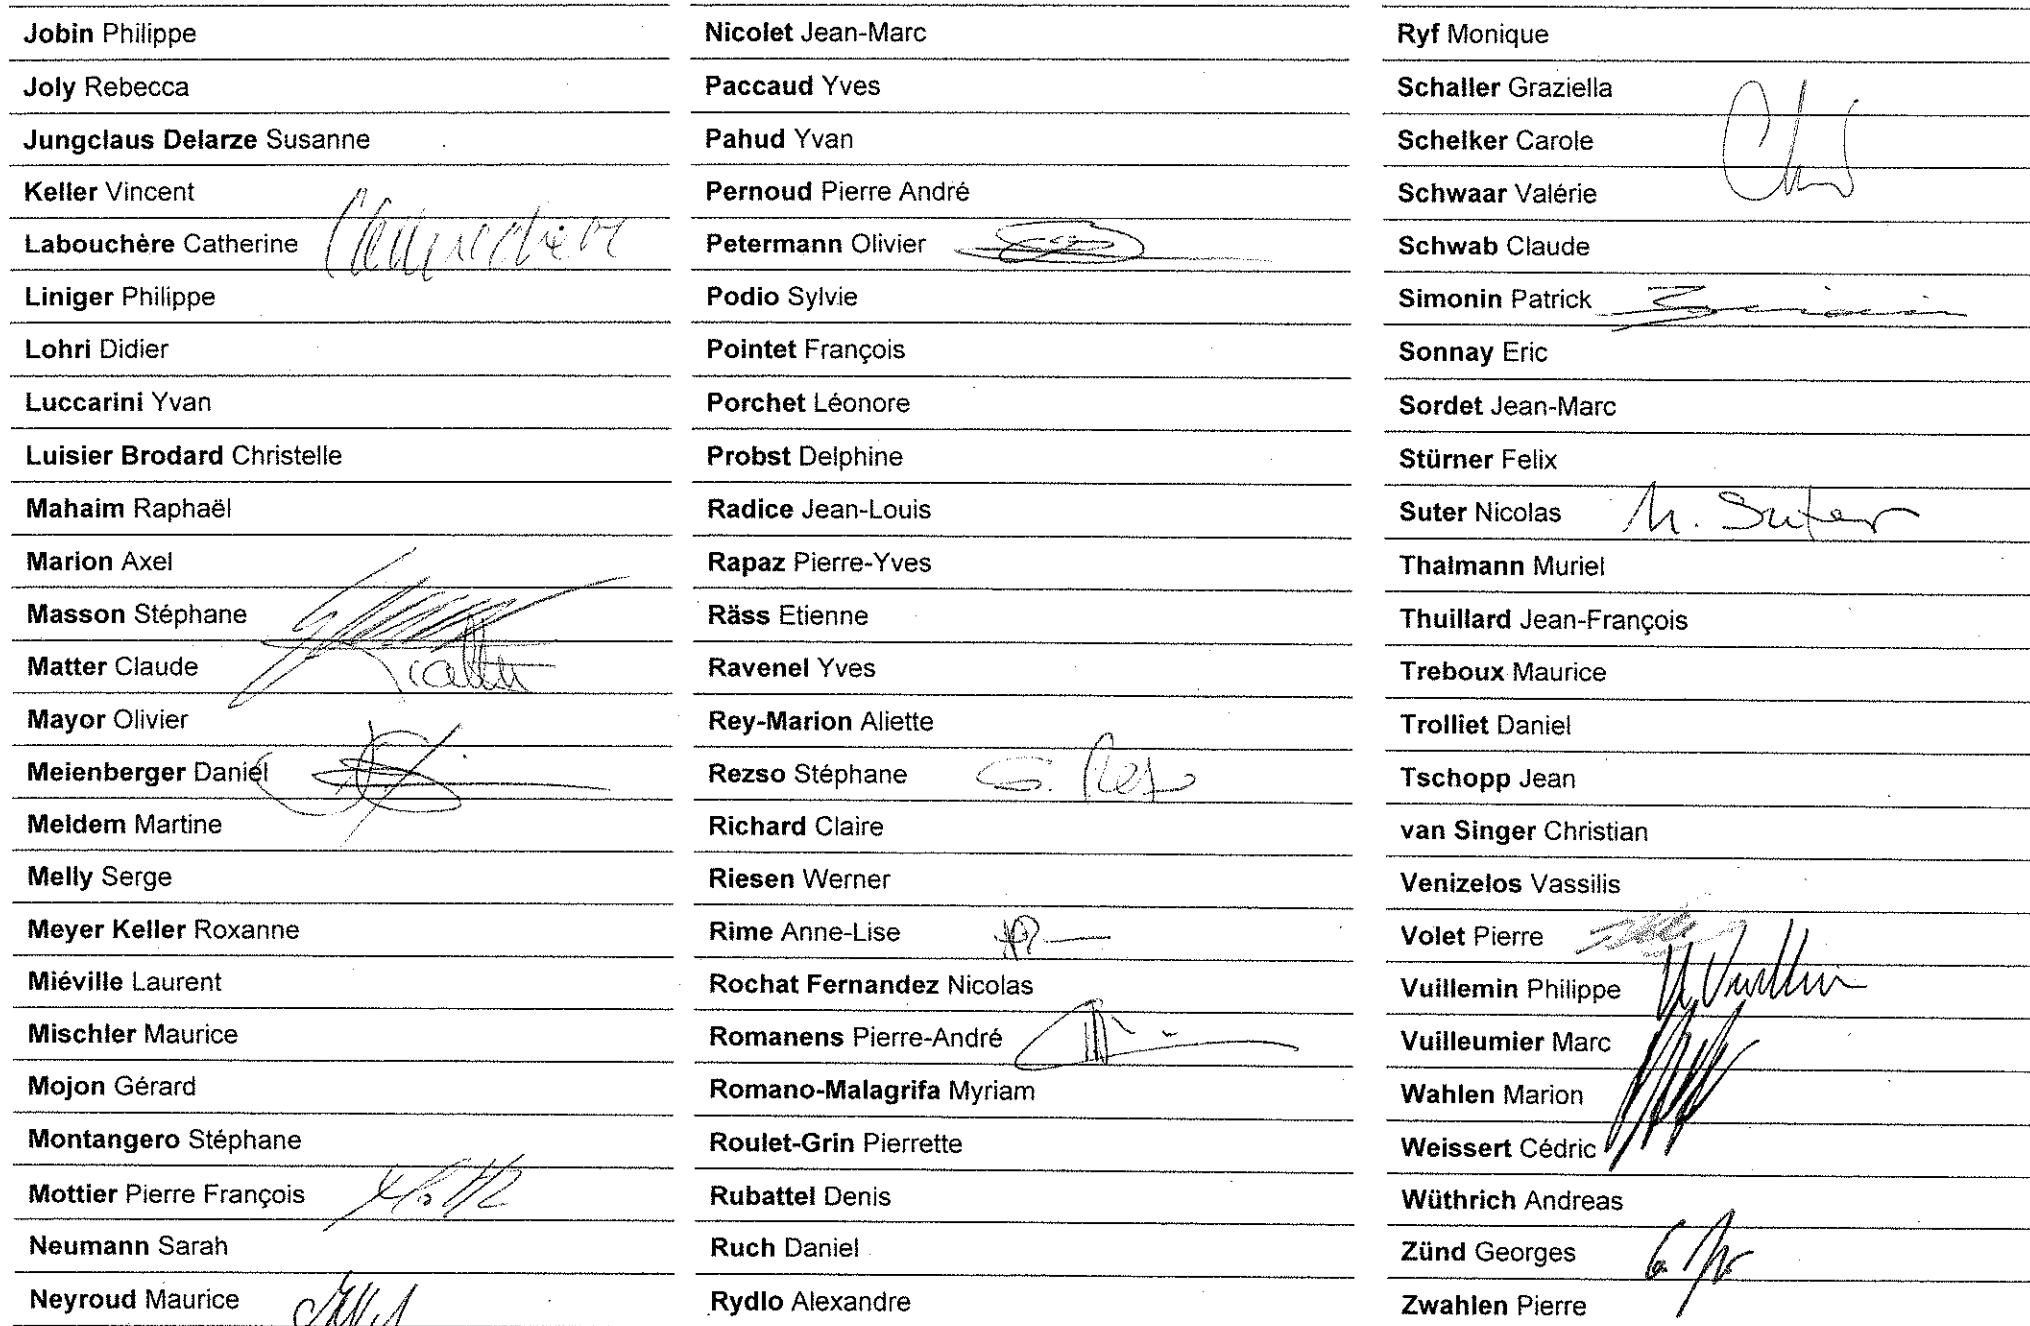 Jobin Philippe
Joly Rebecca
Jungclaus Delarze Susanne
Keller Vincent
Labouchère Catherine
Liniger Philippe
Lohri Didier
Luccarini Yvan
Luisier Brodard Christelle
Mahaim Raphaël
Marion Axel
Masson Stéphane
Matter Claude
Mayor Olivier
Meienberger Daniel
Meldem Martine
Melly Serge
Meyer Keller Roxanne
Miéville Laurent
Mischler Maurice
Mojon Gérard
Montangero Stéphane
Mottier Pierre François
Neumann Sarah
Neyroud Maurice
Nicolet Jean-Marc
Paccaud Yves
Pahud Yvan
Pernoud Pierre André
Petermann Olivier
Podio Sylvie
Pointet François
Porchet Léonore
Probst Delphine
Radice Jean-Louis
Rapaz Pierre-Yves
Räss Etienne
Ravenel Yves
Rey-Marion Aliette
Rezso Stéphane
Richard Claire
Riesen Werner
Rime Anne-Lise
Rochat Fernandez Nicolas
Romanens Pierre-André
Romano-Malagrifa Myriam
Roulet-Grin Pierrette
Rubattel Denis
Ruch Daniel
Rydlo Alexandre
Ryf Monique
Schaller Graziella
Schelker Carole
Schwaar Valérie
Schwab Claude
Simonin Patrick
Sonnay Eric
Sordet Jean-Marc
Stürner Felix
Suter Nicolas N. Suter
Thalmann Muriel
Thuillard Jean-François
Treboux Maurice
Trolliet Daniel
Tschopp Jean
van Singer Christian
Venizelos Vassilis
Volet Pierre
Vuillemin Philippe
Vuilleumier Marc
Wahlen Marion
Weissert Cédric
Wüthrich Andreas
Zünd Georges
Zwahlen Pierre